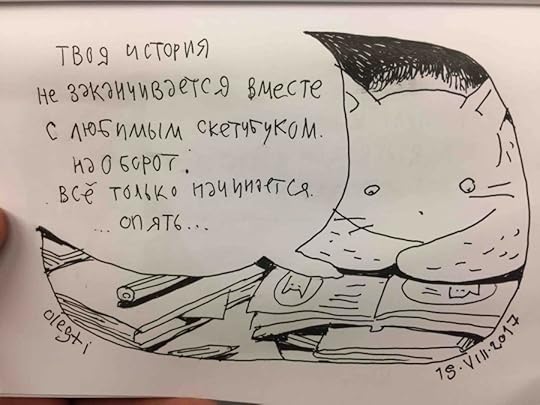 твоя история
не заканчивается вместе
с любимым скетчбуком.
наоборот.
всё только начинается.
...опять...
olegti
19.VIII.2017